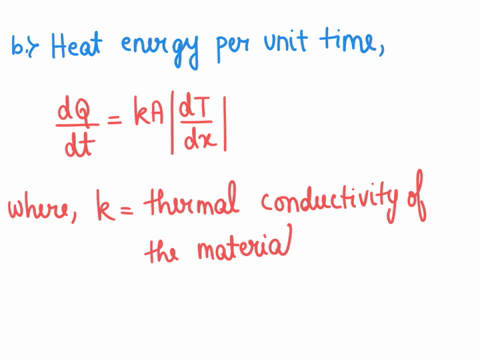 b.> Heat energy per unit time,
dQ/dt = kA |dT/dx|
where, k = thermal conductivity of
the material